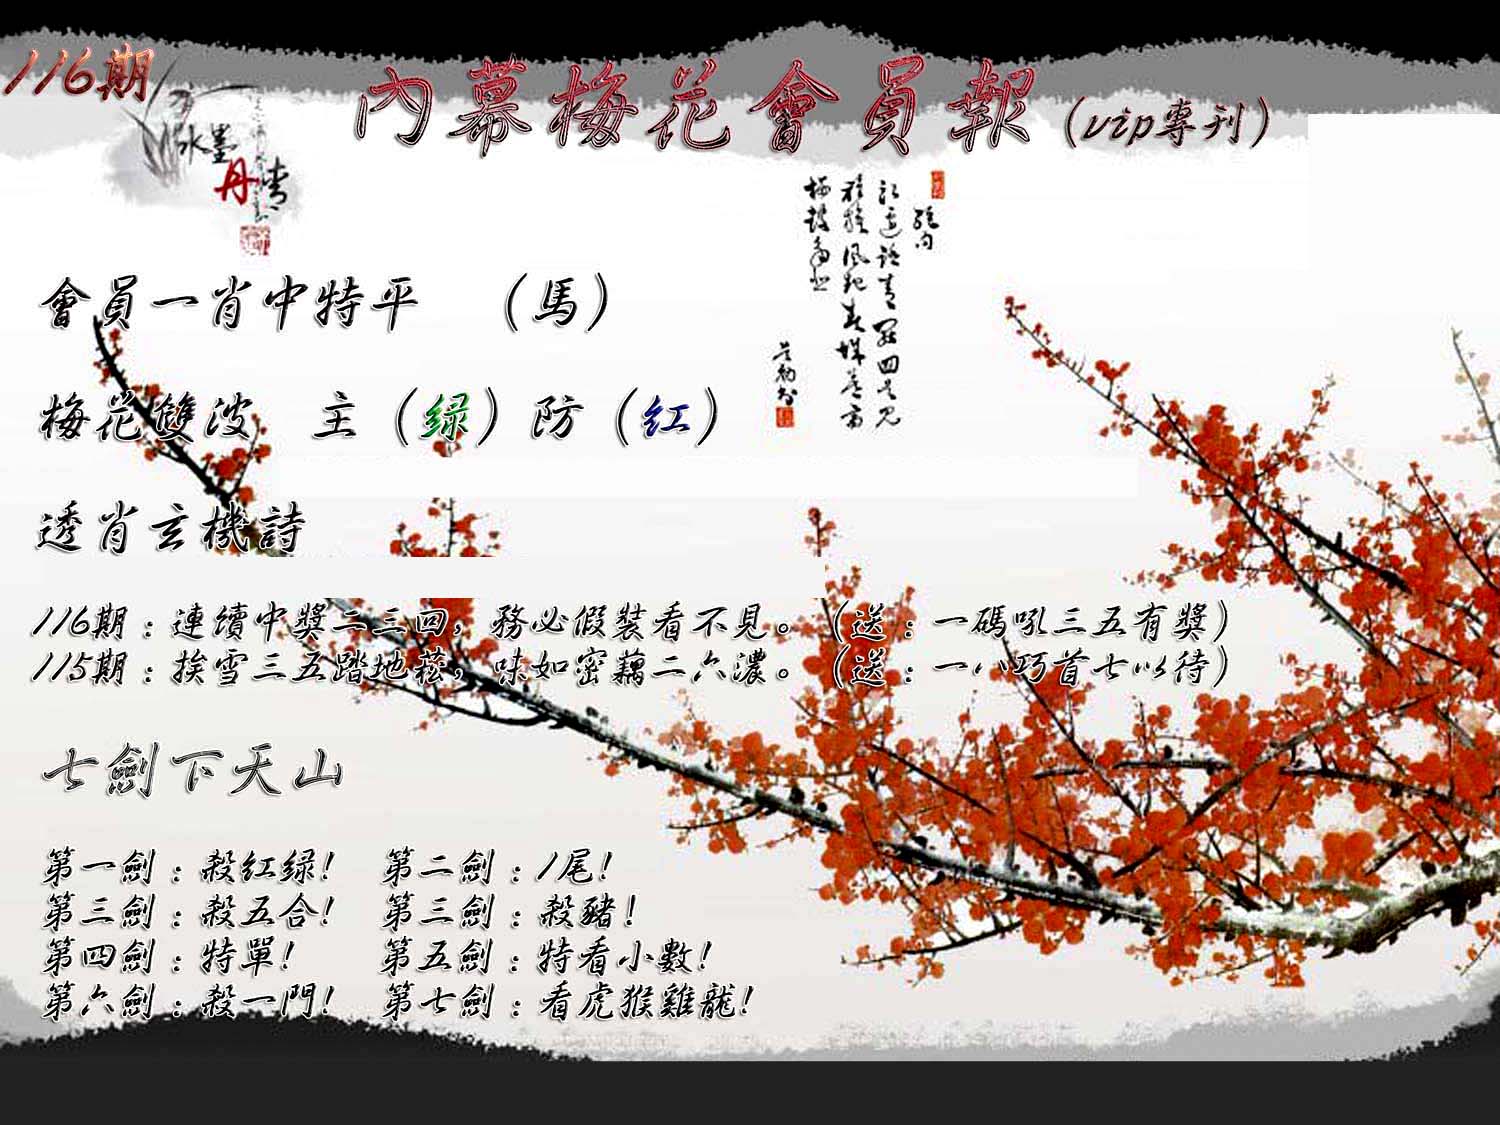 116期
內幕梅花會員報（vip專刊）
水墨
丹青
會員一肖中特平　（馬）
梅花雙波　主（绿）防（红）
透肖玄機詩
116期：連續中獎二三回，務必假裝看不見。（送：一碼吼三五有獎）
115期：挨雪三五踏地菘，味如密藕二六濃。（送：一八巧首七以待）
七劍下天山
第一劍：殺红绿！　第二劍：1尾！
第三劍：殺五合！　第三劍：殺豬！
第四劍：特單！　第五劍：特看小數！
第六劍：殺一門！　第七劍：看虎猴雞龍！